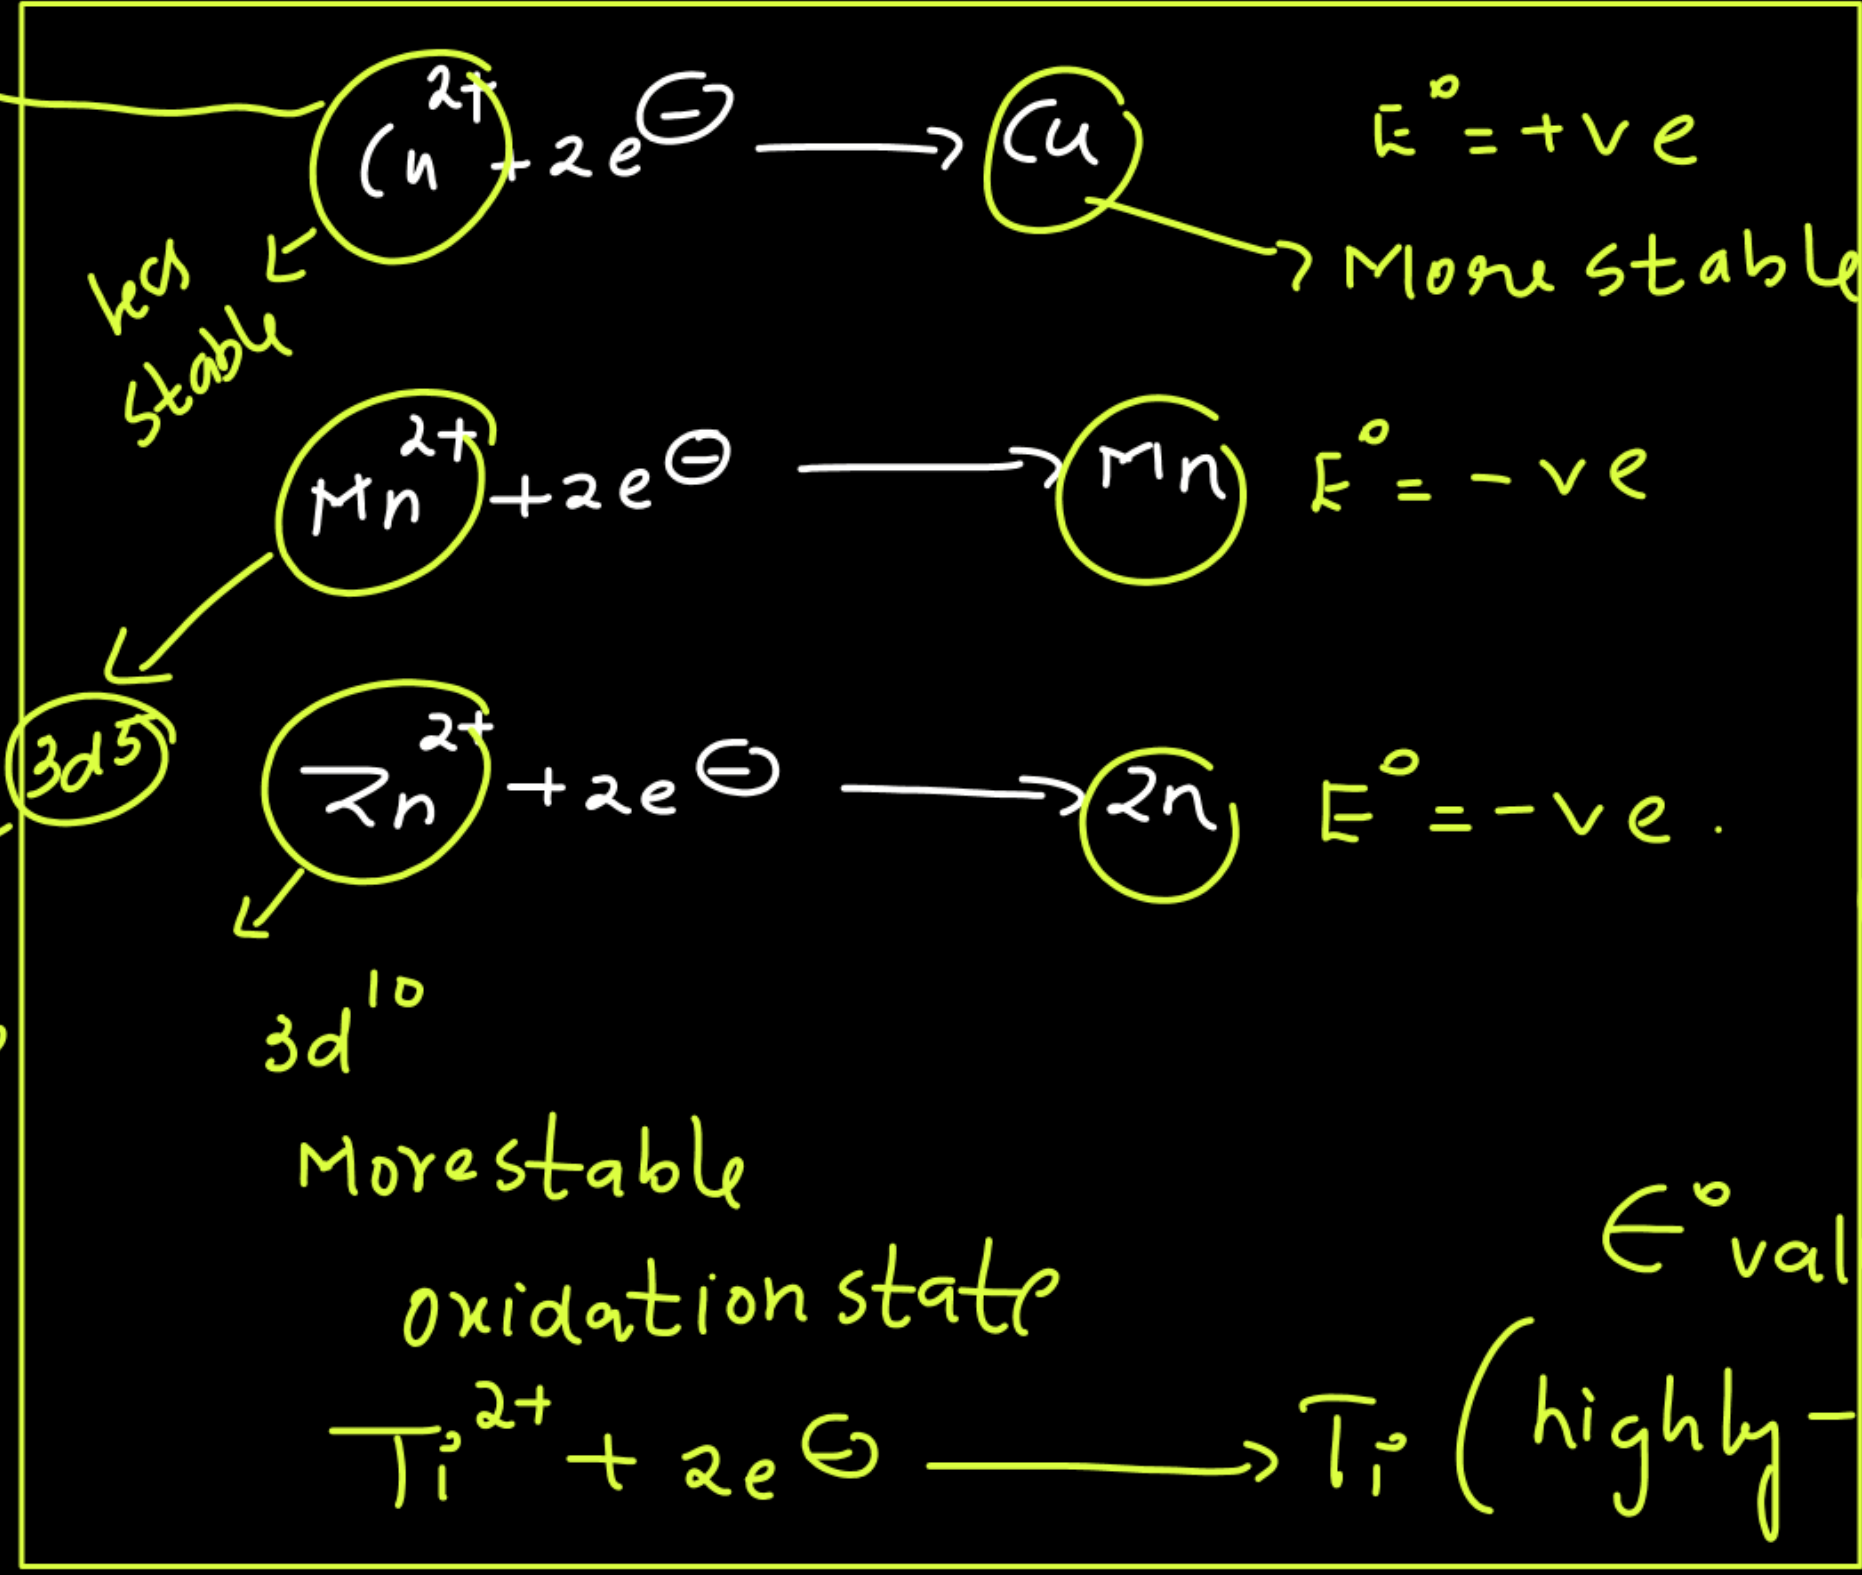 Cu²⁺ + 2e⊖ → Cu E° = +ve
Less stable
More stable
Mn²⁺ + 2e⊖ → Mn E° = -ve
3d⁵
Zn²⁺ + 2e⊖ → Zn E° = -ve.
3d¹⁰
More stable
oxidation state
E° val
Ti²⁺ + 2e⊖ → Ti (highly -